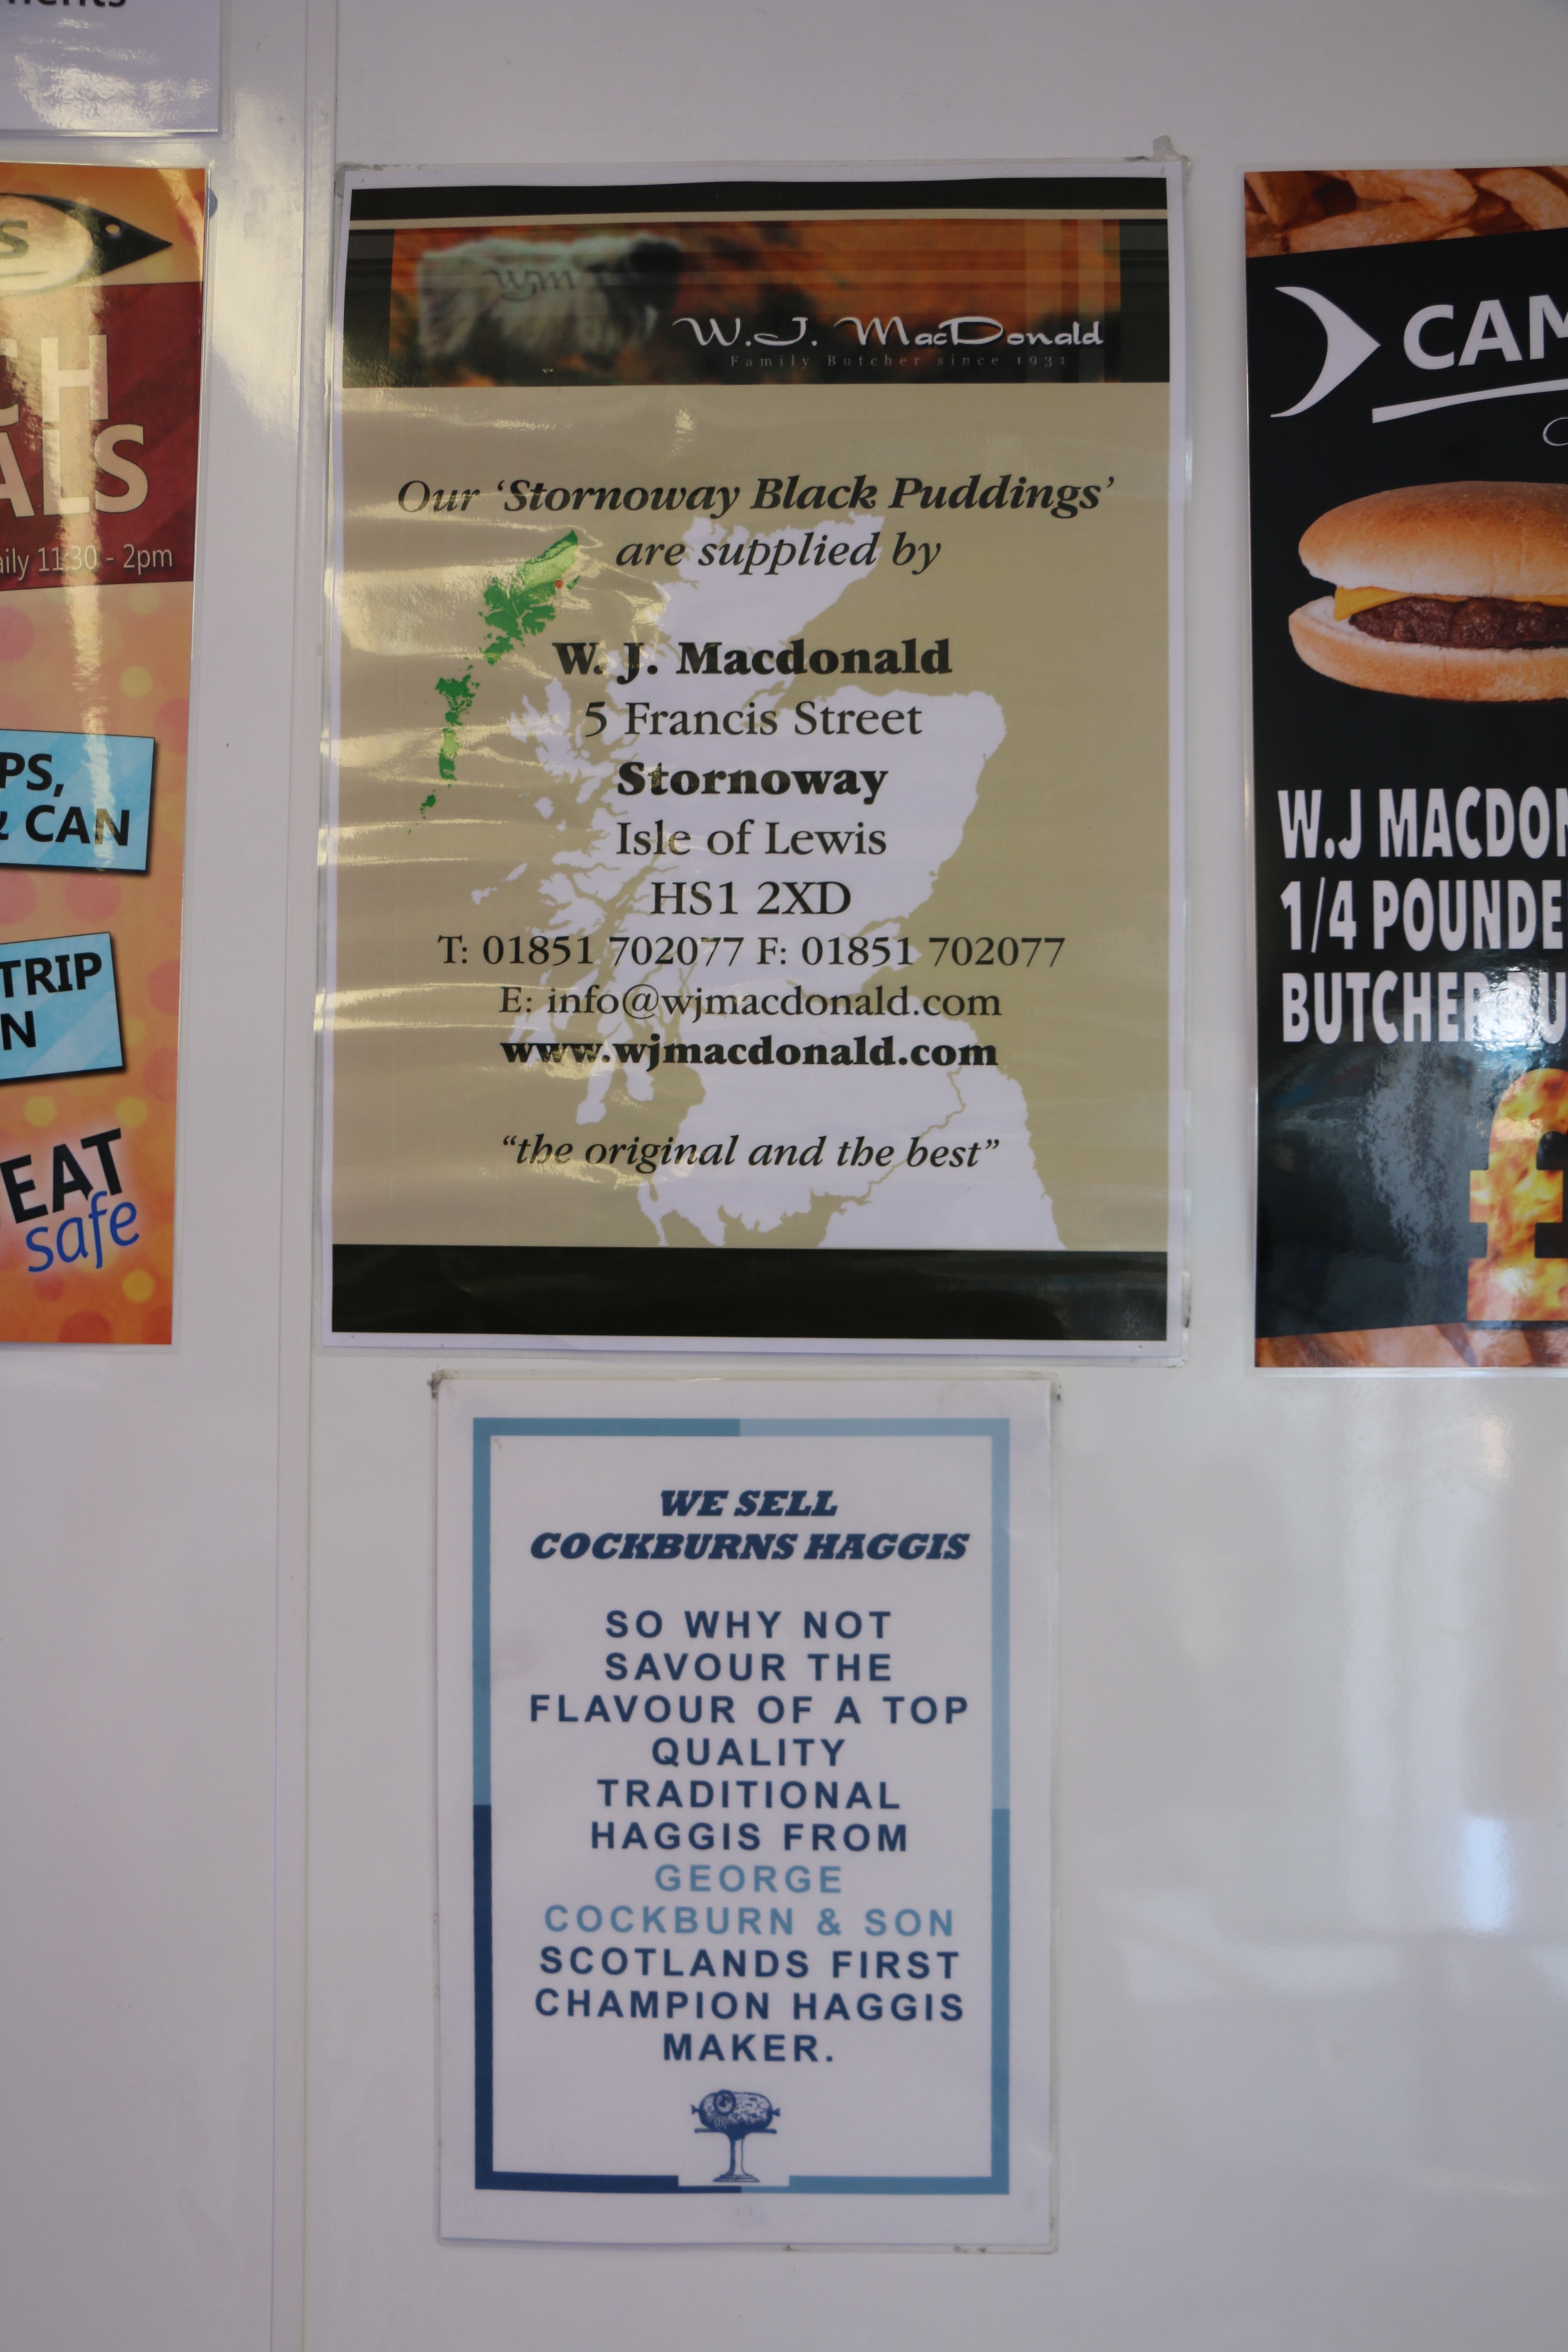 aily 11:30 - 2pm
& CAN
TRIP
EAT
safe
W.J. MacDonald
Family Butcher since 1931
Our ‘Stornoway Black Puddings’
are supplied by
W. J. Macdonald
5 Francis Street
Stornoway
Isle of Lewis
HS1 2XD
T: 01851 702077 F: 01851 702077
E: info@wjmacdonald.com
www.wjmacdonald.com
“the original and the best”
WE SELL
COCKBURNS HAGGIS
SO WHY NOT
SAVOUR THE
FLAVOUR OF A TOP
QUALITY
TRADITIONAL
HAGGIS FROM
GEORGE
COCKBURN & SON
SCOTLANDS FIRST
CHAMPION HAGGIS
MAKER.
CAM
W.J MACDON
1/4 POUNDE
BUTCHER BU
£